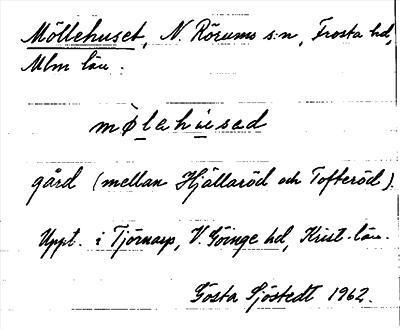 Möllehuset, N. Rörums s:n, Frosta hd,
Mlm län.
mø̀lahu̇sad
gård (mellan Hjällaröd och Tofteröd).
Uppt. i Tjörnarp, V. Göinge hd, Krist. län.
Gösta Sjöstedt 1962.